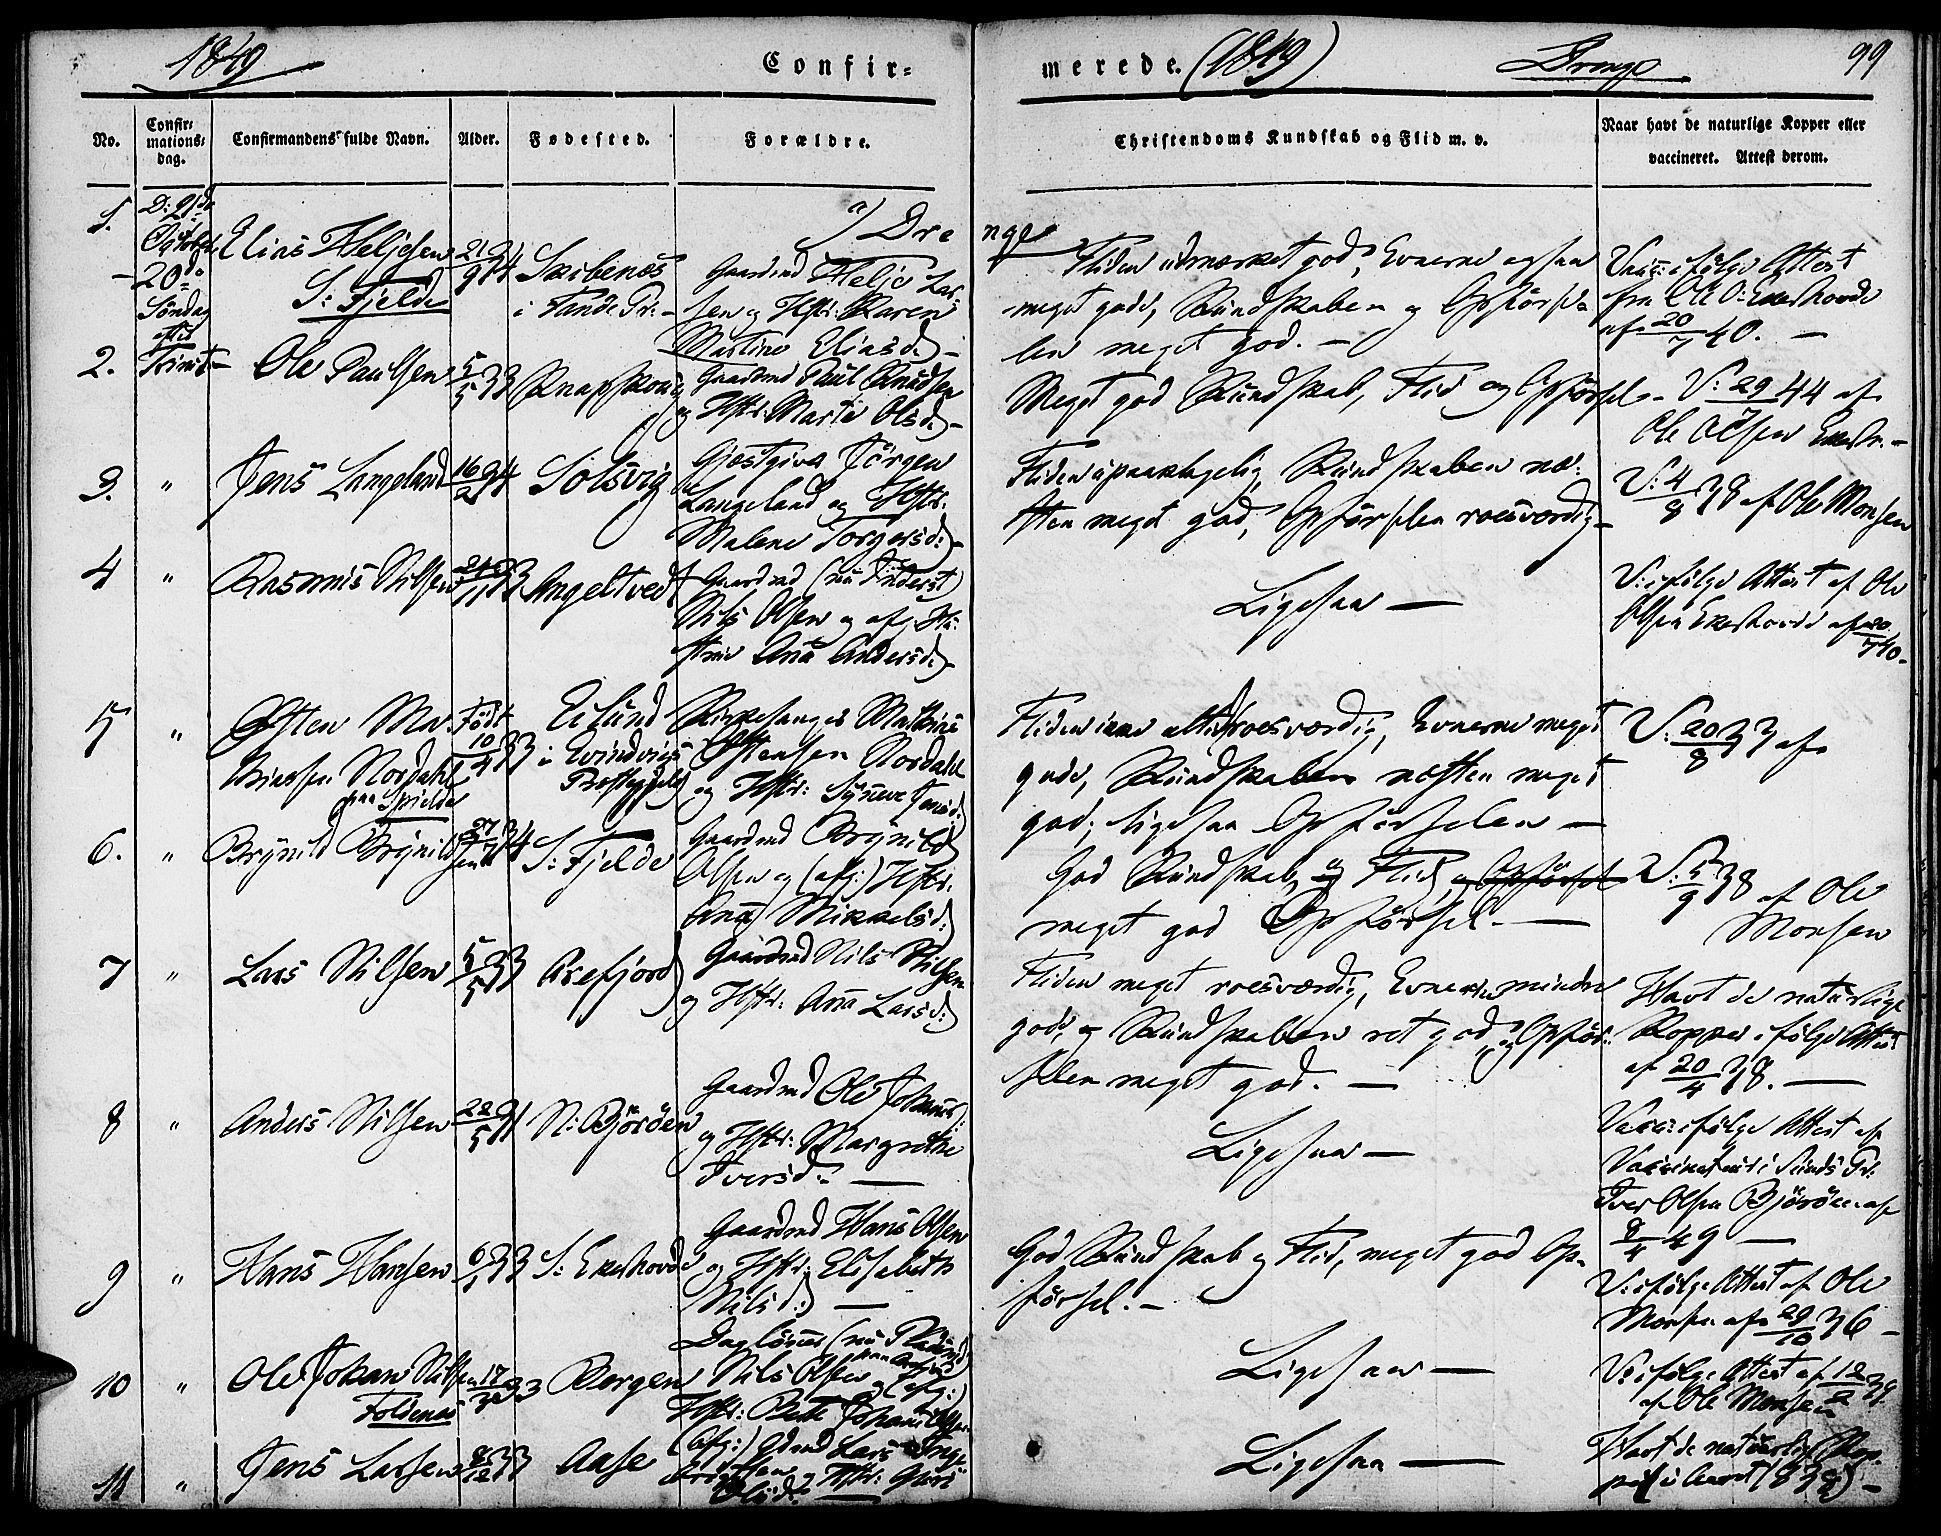 1849
Confir=
merede. (1849)
Drenge
99
No.
Confir=
mations=
dag.
Confirmandens fulde Navn.
Alder.
Fødested.
Forældre.
Christendoms Kundskab og Flid m. v.
Naar havt de naturlige Kopper eller
vaccineret. Attest derom.
a) Dre
nge
1.
D: 21de
October
20de
Søndag
Trinit
Elias Heljesen
S: Fjelde
21/9 34
i Fande Pr: -
Gaardmd Helje Lar=
sen og Hstr: Karen
Martine Eliasd:) -
Fliden udmærket god, Evnerne ogsaa
meget gode, Kundskaben og Opførse
len meget god. -
Vacc: ifølge Attest
fra Ole O: Ekerhovde
af 20/7 40. -
2.
Ole Paulsen
5/5 33
Knapskou
Gaardmd Paul Knudsen
og Hstr: Marte Olsd:) -
Meget god Kundskab, Flid og Opførsel -
V: 29/ 44 af
Ole Olsen Ekerh. -
3.
"
Jens Langeland
16/2 34
Solsvig
Gjæstgiver Jørgen
Langeland og Hstr:
Malene Torgersd:) -
Fliden upaaklagelig, Kundskaben næ=
sten meget god, Opførselen roesværdig -
V: 4/8 38 af Ole Monsen
4
"
Rasmus Nilsen
24/11 33
Angeltvedt
Gaardmd (nu Inderst)
Nils Olsen og afg: Hu=
strue Ana Andersd:) -
Ligesaa —
V: ifølge Attest af Ole
Olsen Ekerhovde af 20/7 40. -
5
"
Østen Ma=
thiassen Nordahl
paa Spjeld
Født
10/4 33
Eilund
i Evindvigs
Prestegjeld
Kirkesanger Mathias
Østensen Nordahl
og Hstr: Synneve Jensd:)
Fliden ikke altid roesværdig, Evnerne meget
gode, Kundskaben næsten meget
god; ligesaa Opførselen —
V: 20/8 33 af
6.
"
Brynild Brynild
sen
27/7 34
S: Fjelde
Gaardmd Brynild
Olsen og (afg:) Hstr:
Ana Mikkelsd:)
God Kundskab, og Flid, og Opførsel
meget god Opførsel. —
V: 5/9 38 af Ole
Monsen
7
"
Lars Nilsen
5/5 33
Arefjord
Gaardmd Nils Nilsen
og Hstr: Ana Larsd:)
Fliden meget roesværdig, Evnerne mindre
gode, og Kundskaben ret god, og Opfør=
selen meget god. —
Havt de naturlige
Kopper ifølge Attest
af 20/4 38. —
8
"
Anders Nilsen
N: Bjørøen
Gaardmd Ole Johannes:
og Hstr: Margrethe
Iversd: —
Ligesaa —
Vacc: ifølge Attest af
Vaccinateur i Sunds Pr:
Iver Olsen Bjørøen af
9/4 49 —
9
"
Hans Hansen
6/1 33
S: Ekerhovde
Gaardmd Hans Olsen
og Hstr: Elisabeth
Nilsd:) —
God Kundskab og Flid, meget god Op=
førsel. -
V: ifølge Attest af Ole
Monsen af 29/10 36 -
10
"
Ole Johan Nilsen
Foldenes
Bergen
Nils Olsen og (afg:)
Ligesaa —
V: ifølge Attest af 12/2 39.
af Ole Monsen
11
"
Jens Larsen
8/12 33
Aase
(afg:) Gdmd Lars Inge
brigtsen og Hstr: Guri
Olsd: —
Ligesaa —
Havt de naturlige Kop=
per i Aaret (1838) -